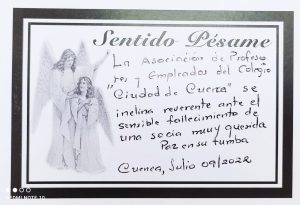 Sentido Pésame
La Asociación de Profeso
res y Empleados del Colegio
"Ciudad de Cuenca" se
inclina reverente ante el
sensible fallecimiento de
una socia muy querida
Paz en su tumba
Cuenca, Julio 09/2022
REDMI NOTE 10